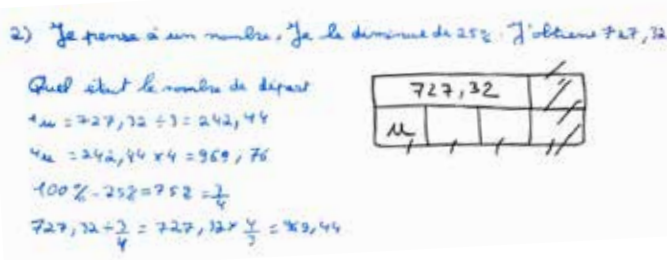 2) Je pense à un nombre. Je le diminue de 25%. J'obtiens 727,32
Quel était le nombre de départ
1u = 727,32 ÷ 3 = 242,44
4u = 242,44 x 4 = 969,76
100% - 25% = 75% = 3/4
727,32 ÷ 3/4 = 727,32 x 4/3 = 969,44
727,32
u